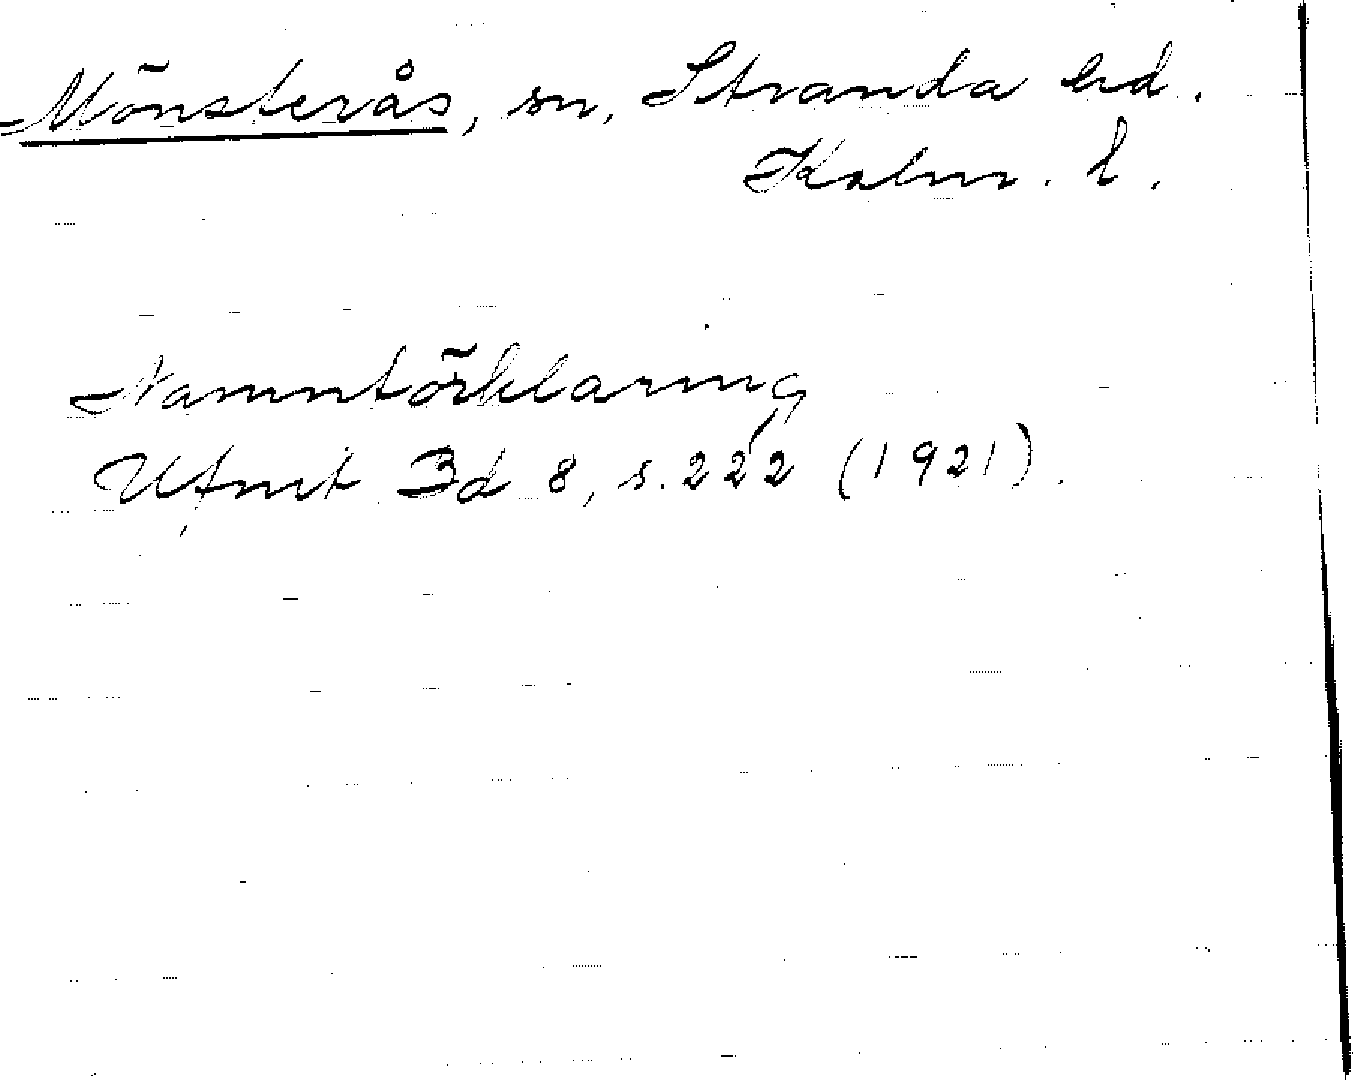 Mönsterås, sn, Stranda hd.
Kalm. l.
Namnförklaring
Ufmt Bd 8, s. 222 (1921).